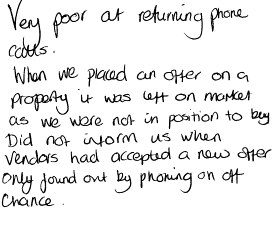 Very poor at returning phone
calls.
When we placed an offer on a
property it was left on market
as we were not in position to buy
Did not inform us when
vendors had accepted a new offer
only found out by phoning on off
chance.